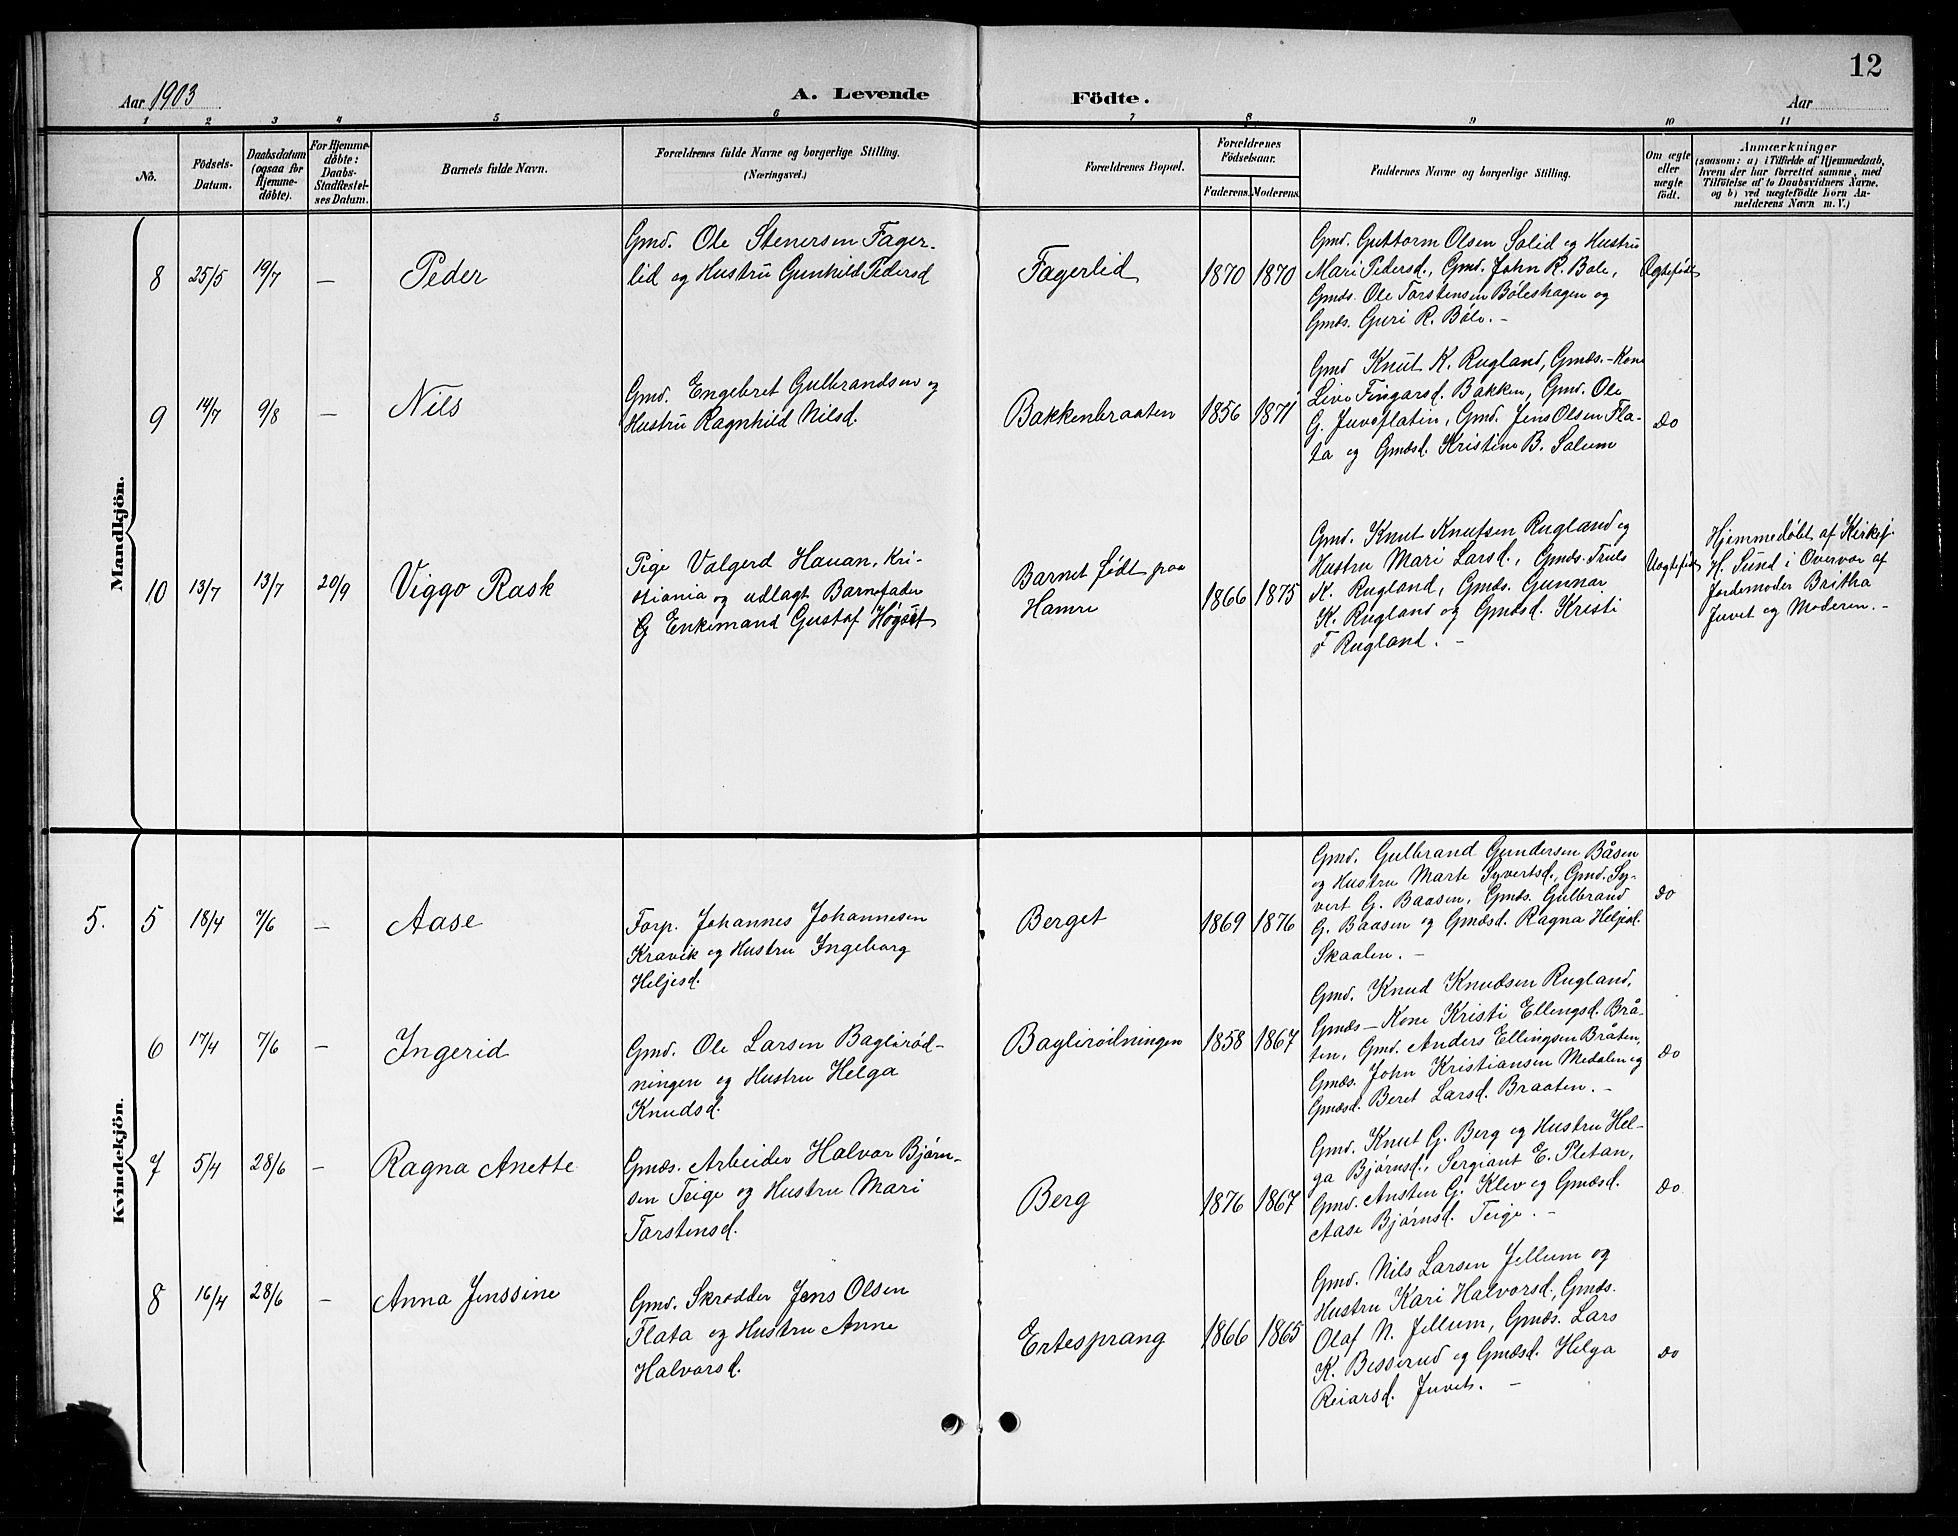 12
Aar 1903
A. Levende
Födte.
Aar
1 2 3 4 5 6 7 8 9 10 11
No.
Födsels-
Datum.
Daabsdatum
(ogsaa for
Hjemme-
döbte).
For Hjemme-
döbte:
Daabs-
Stadfæstel-
ses Datum.
Barnets fulde Navn.
Forældrenes fulde Navne og borgerlige Stilling.
(Næringsvei.)
Forældrenes Bopæl.
Forældrenes
Födselsaar.
Faderens. Moderens.
Faddernes Navne og borgerlige Stilling.
Om ægte
eller
uægte
født.
Anmærkninger
(saasom: a) i Tilfælde af Hjemmedaab,
hvem der har forrettet samme, med
Tilföielse af to Daabsvidners Navne,
og b) ved uægtefödte börn An-
melderens Navn m. V.)
Mandkjön.
8 25/5 19/7 — Peder
Gmd. Ole Stenersen Fager-
lid og Hustru Gunhild Pedersd
Fagerlid
1870 1870
Gmd. Guttorm Olsen Solid og Hustru
Mari Pedersd., Gmd. John R. Bøle,
Gmds. Ole Torstensen Bøleshagen og
Gmds. Guri R. Bøle. –
Ægtefødt
9 14/7 9/8 — Nils
Gmd. Engebret Gulbrandsen og
Hustru Ragnhild Nilsd.
Bakkenbraaten
1856 1871
Gmd Knut K. Rugland, Gmds.-Kone
Live Fingarsd. Bakken, Gmd. Ole
G. Juvoflatin, Gmd. Jens Olsen Fla-
ta og Gmdsd. Kristine B. Solum
do
10 13/7 13/7 20/9 Viggo Rask
Pige Valgerd Hauan, Kri-
stiania og udlagt Barnefader
G Enkemand Gustaf Høgset
Barnet født paa
Hamre
1866 1875
Gmd. Knut Knutsen Rugland og
Hustru Mari Larsd., Gmds. Truls
K. Rugland, Gmds. Gunnar
K. Rugland og Gmdsd. Kristi
F Rugland. –
Uægtefødt
Hjemmedøbt af Kirkesj.
H. Sund i Overvær af
Jordemoder Britha
Juvet og Moderen. –
Kvindekjön.
5. 5 18/4 7/6 — Aase
Forp. Johannes Johannesen
Kravik og Hustru Ingeborg
Heljesd.
Berget
1869 1876
Gmd. Gulbrand Gundersen Båsen
og Hustru Marte Syvertsd., Gmd. Sy-
vert G. Baasen, Gmds. Gulbrand
G. Baasen og Gmdsd. Ragna Heljesd.
Skaalen. –
do
6 17/4 7/6 — Ingerid
Gmd. Ole Larsen Baglirød-
ningen og Hustru Helga
Knudsd.
Baglirødningen
1858 1867
Gmd. Knud Knudsen Rugland,
Gmds – Kone Kristi Ellingsd. Brå-
ten, Gmd. Anders Ellingsen Bråten,
Gmds. John Kristiansen Medalen og
Gmdsd. Beret Larsd. Braaten. –
do
7 5/4 28/6 — Ragna Anette
Gmds. Arbeider Halvor Bjørn-
sen Teige og Hustru Mari
Torstensd.
Berg
1876 1867
Gmd. Knut G. Berg og Hustru Hel-
ga Bjørnsd., Sergiant E. Pletan,
Gmd. Austen G. Klev og Gmdsd.
Aase Bjørnsd. Teige. –
do
8 16/4 28/6 — Anna Jenssine
Gmd. Skrædder Jens Olsen
Flata og Hustru Anne
Halvorsd.
Ertesprang
1866 1865
Gmd. Nils Larsen Jellum og
Hustru Kari Halvorsd., Gmds.
Olaf N. Jellum, Gmds. Lars
K. Besserud og Gmdsd. Helga
Reiarsd. Juvet. –
do